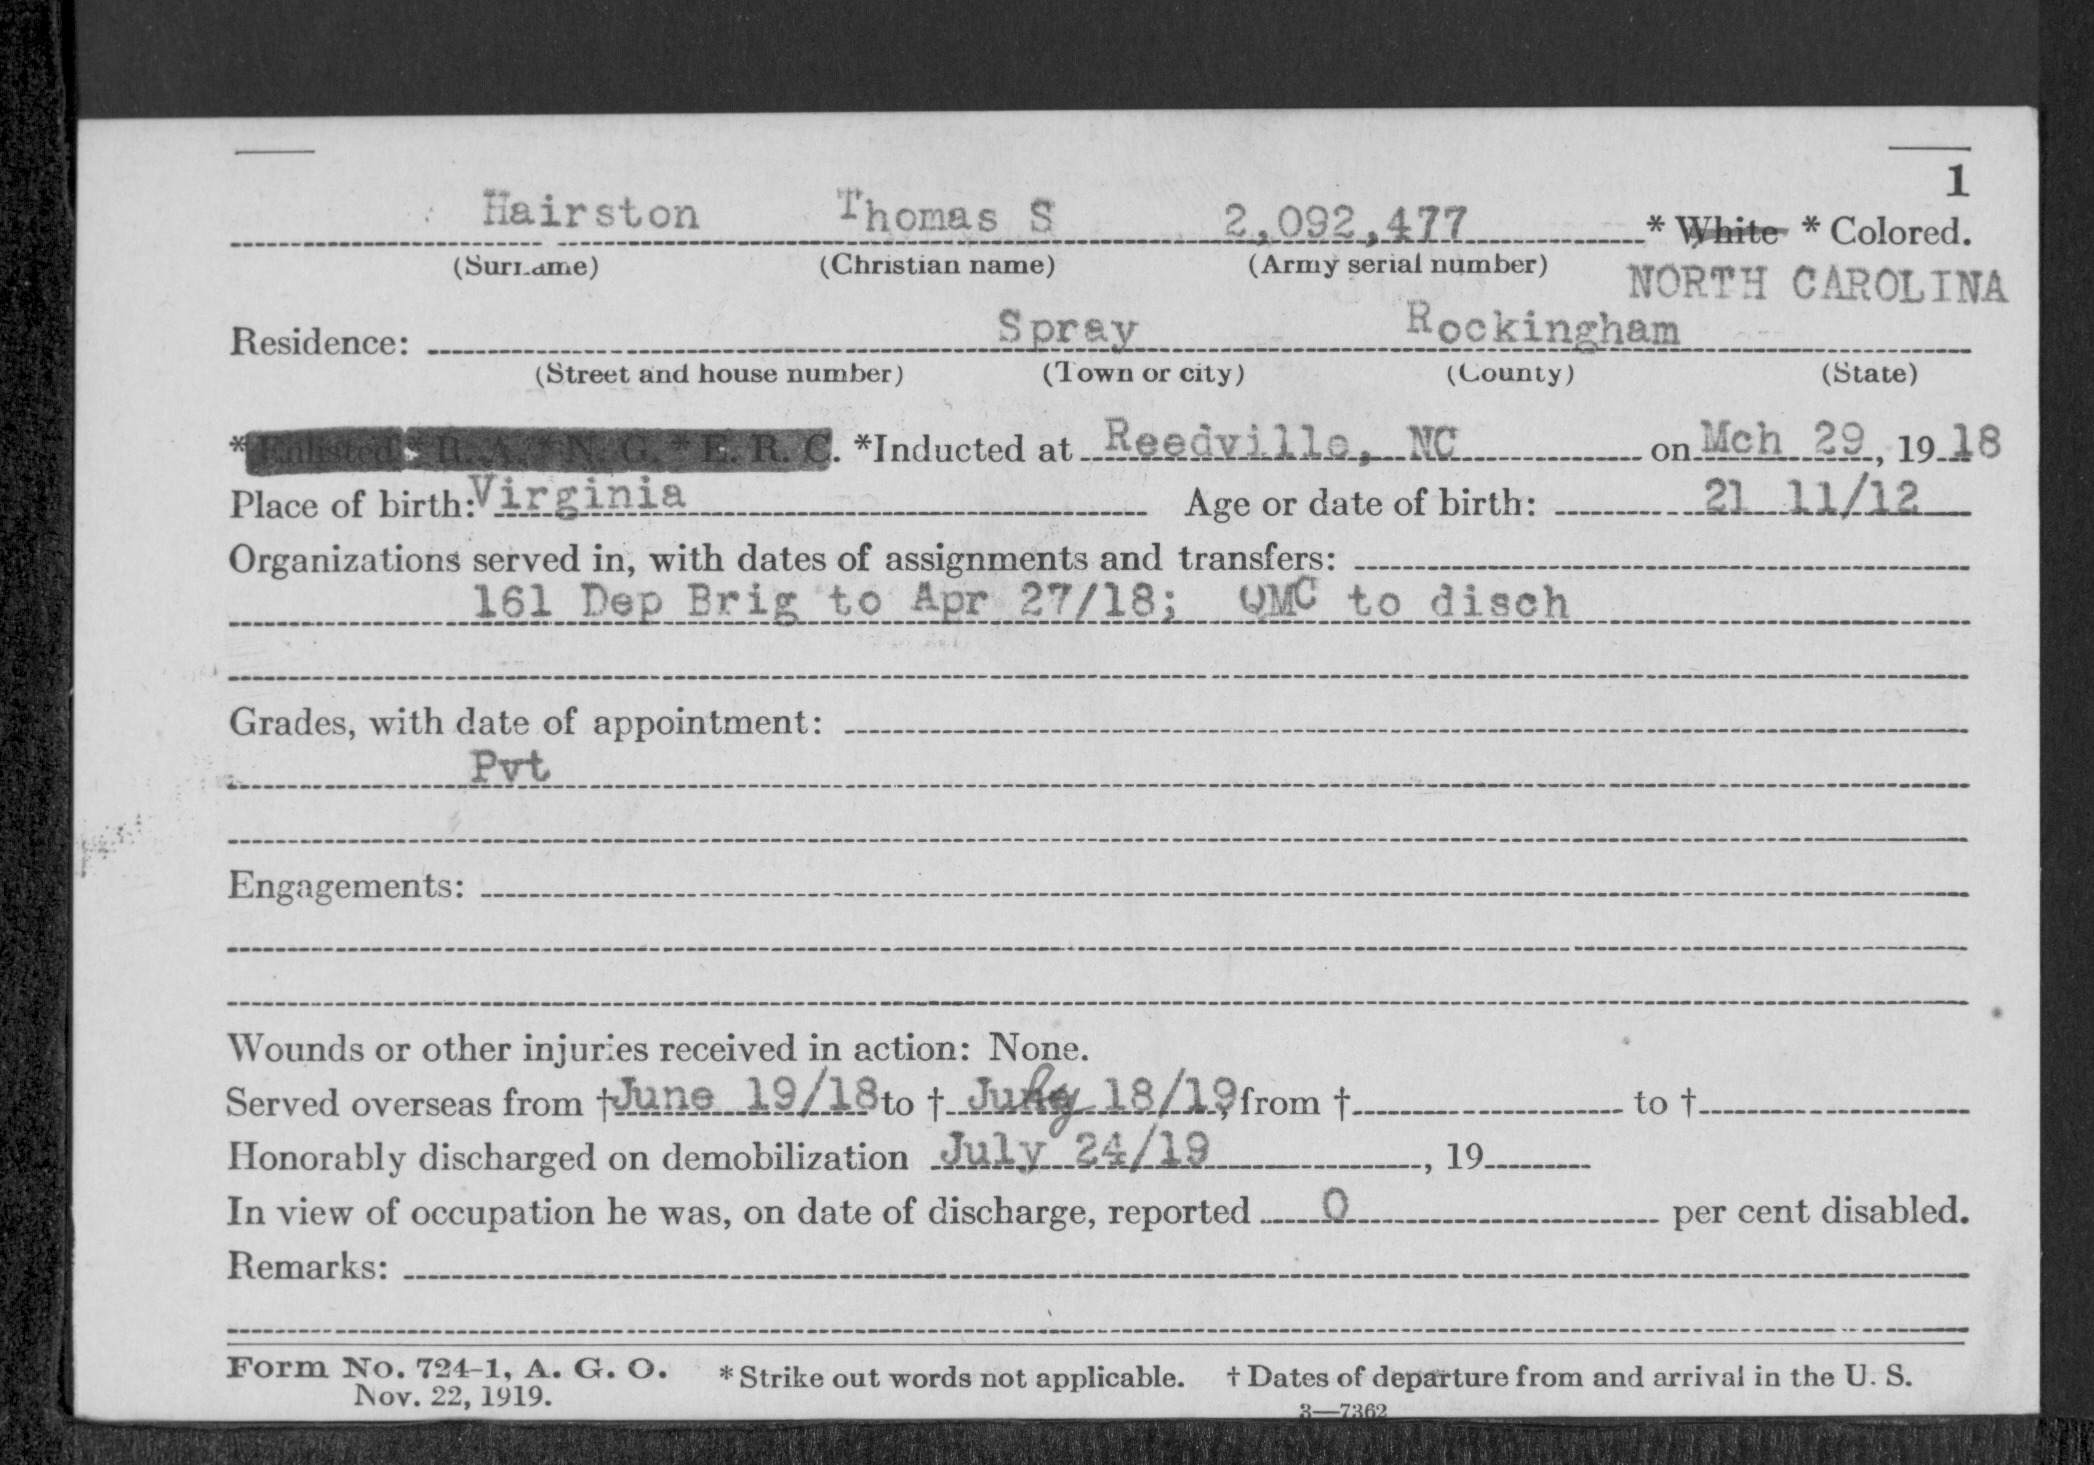 1
Hairston Thomas S 2,092,477 * White * Colored.
(Surname) (Christian name) (Army serial number)
NORTH CAROLINA
Residence: Spray Rockingham
(Street and house number) (Town or city) (County) (State)
* Enlisted * R. A. * N. G. * E. R. C. *Inducted at Reedville, NC on Mch 29, 19 18
Place of birth: Virginia Age or date of birth: 21 11/12
Organizations served in, with dates of assignments and transfers:
161 Dep Brig to Apr 27/18; QMC to disch
Grades, with date of appointment:
Pvt
Engagements:
Wounds or other injuries received in action: None.
Served overseas from † June 19/18 to † July 18/19, from † to †
Honorably discharged on demobilization July 24/19, 19
In view of occupation he was, on date of discharge, reported 0 per cent disabled.
Remarks:
Form No. 724-1, A. G. O. * Strike out words not applicable. † Dates of departure from and arrival in the U. S.
Nov. 22, 1919.
3—7362